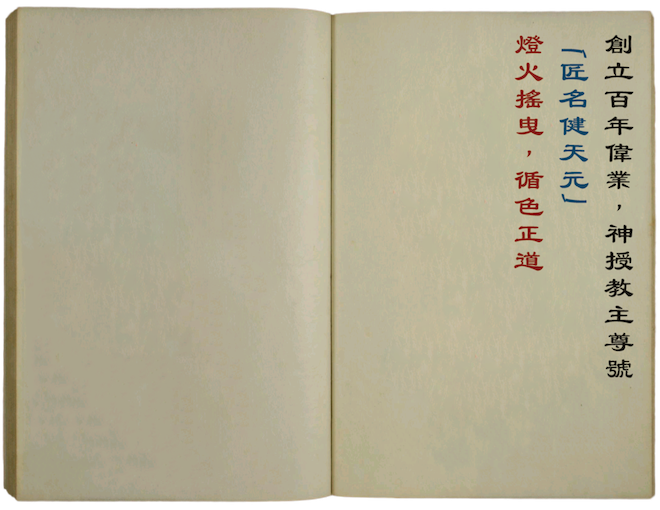 創立百年偉業，神授教主尊號
「匠名健天元」
燈火搖曳，循色正道